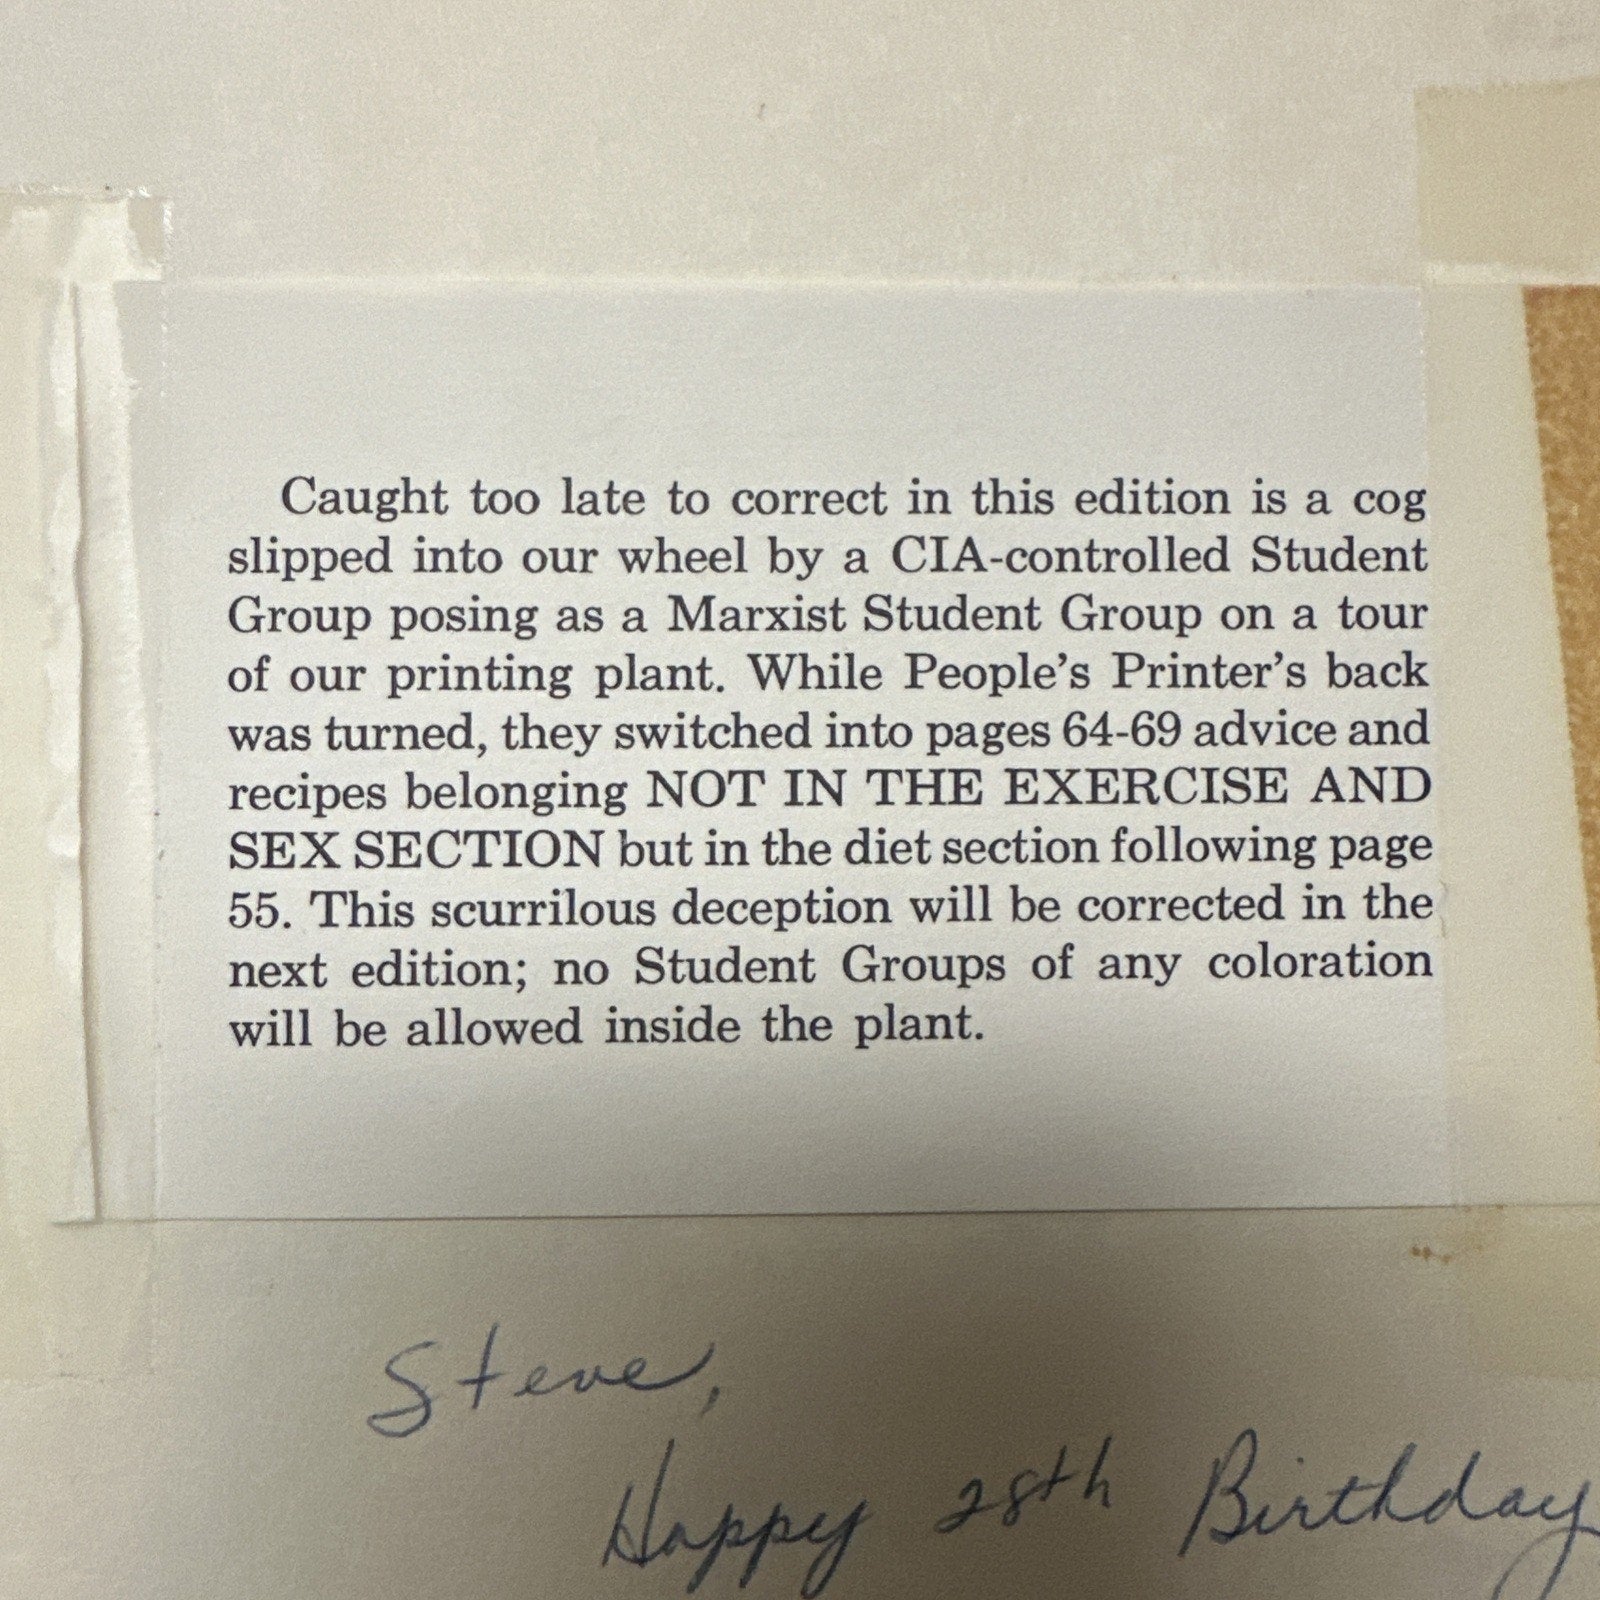 Caught too late to correct in this edition is a cog
slipped into our wheel by a CIA-controlled Student
Group posing as a Marxist Student Group on a tour
of our printing plant. While People's Printer's back
was turned, they switched into pages 64-69 advice and
recipes belonging NOT IN THE EXERCISE AND
SEX SECTION but in the diet section following page
55. This scurrilous deception will be corrected in the
next edition; no Student Groups of any coloration
will be allowed inside the plant.
Steve,
Happy 28th Birthday